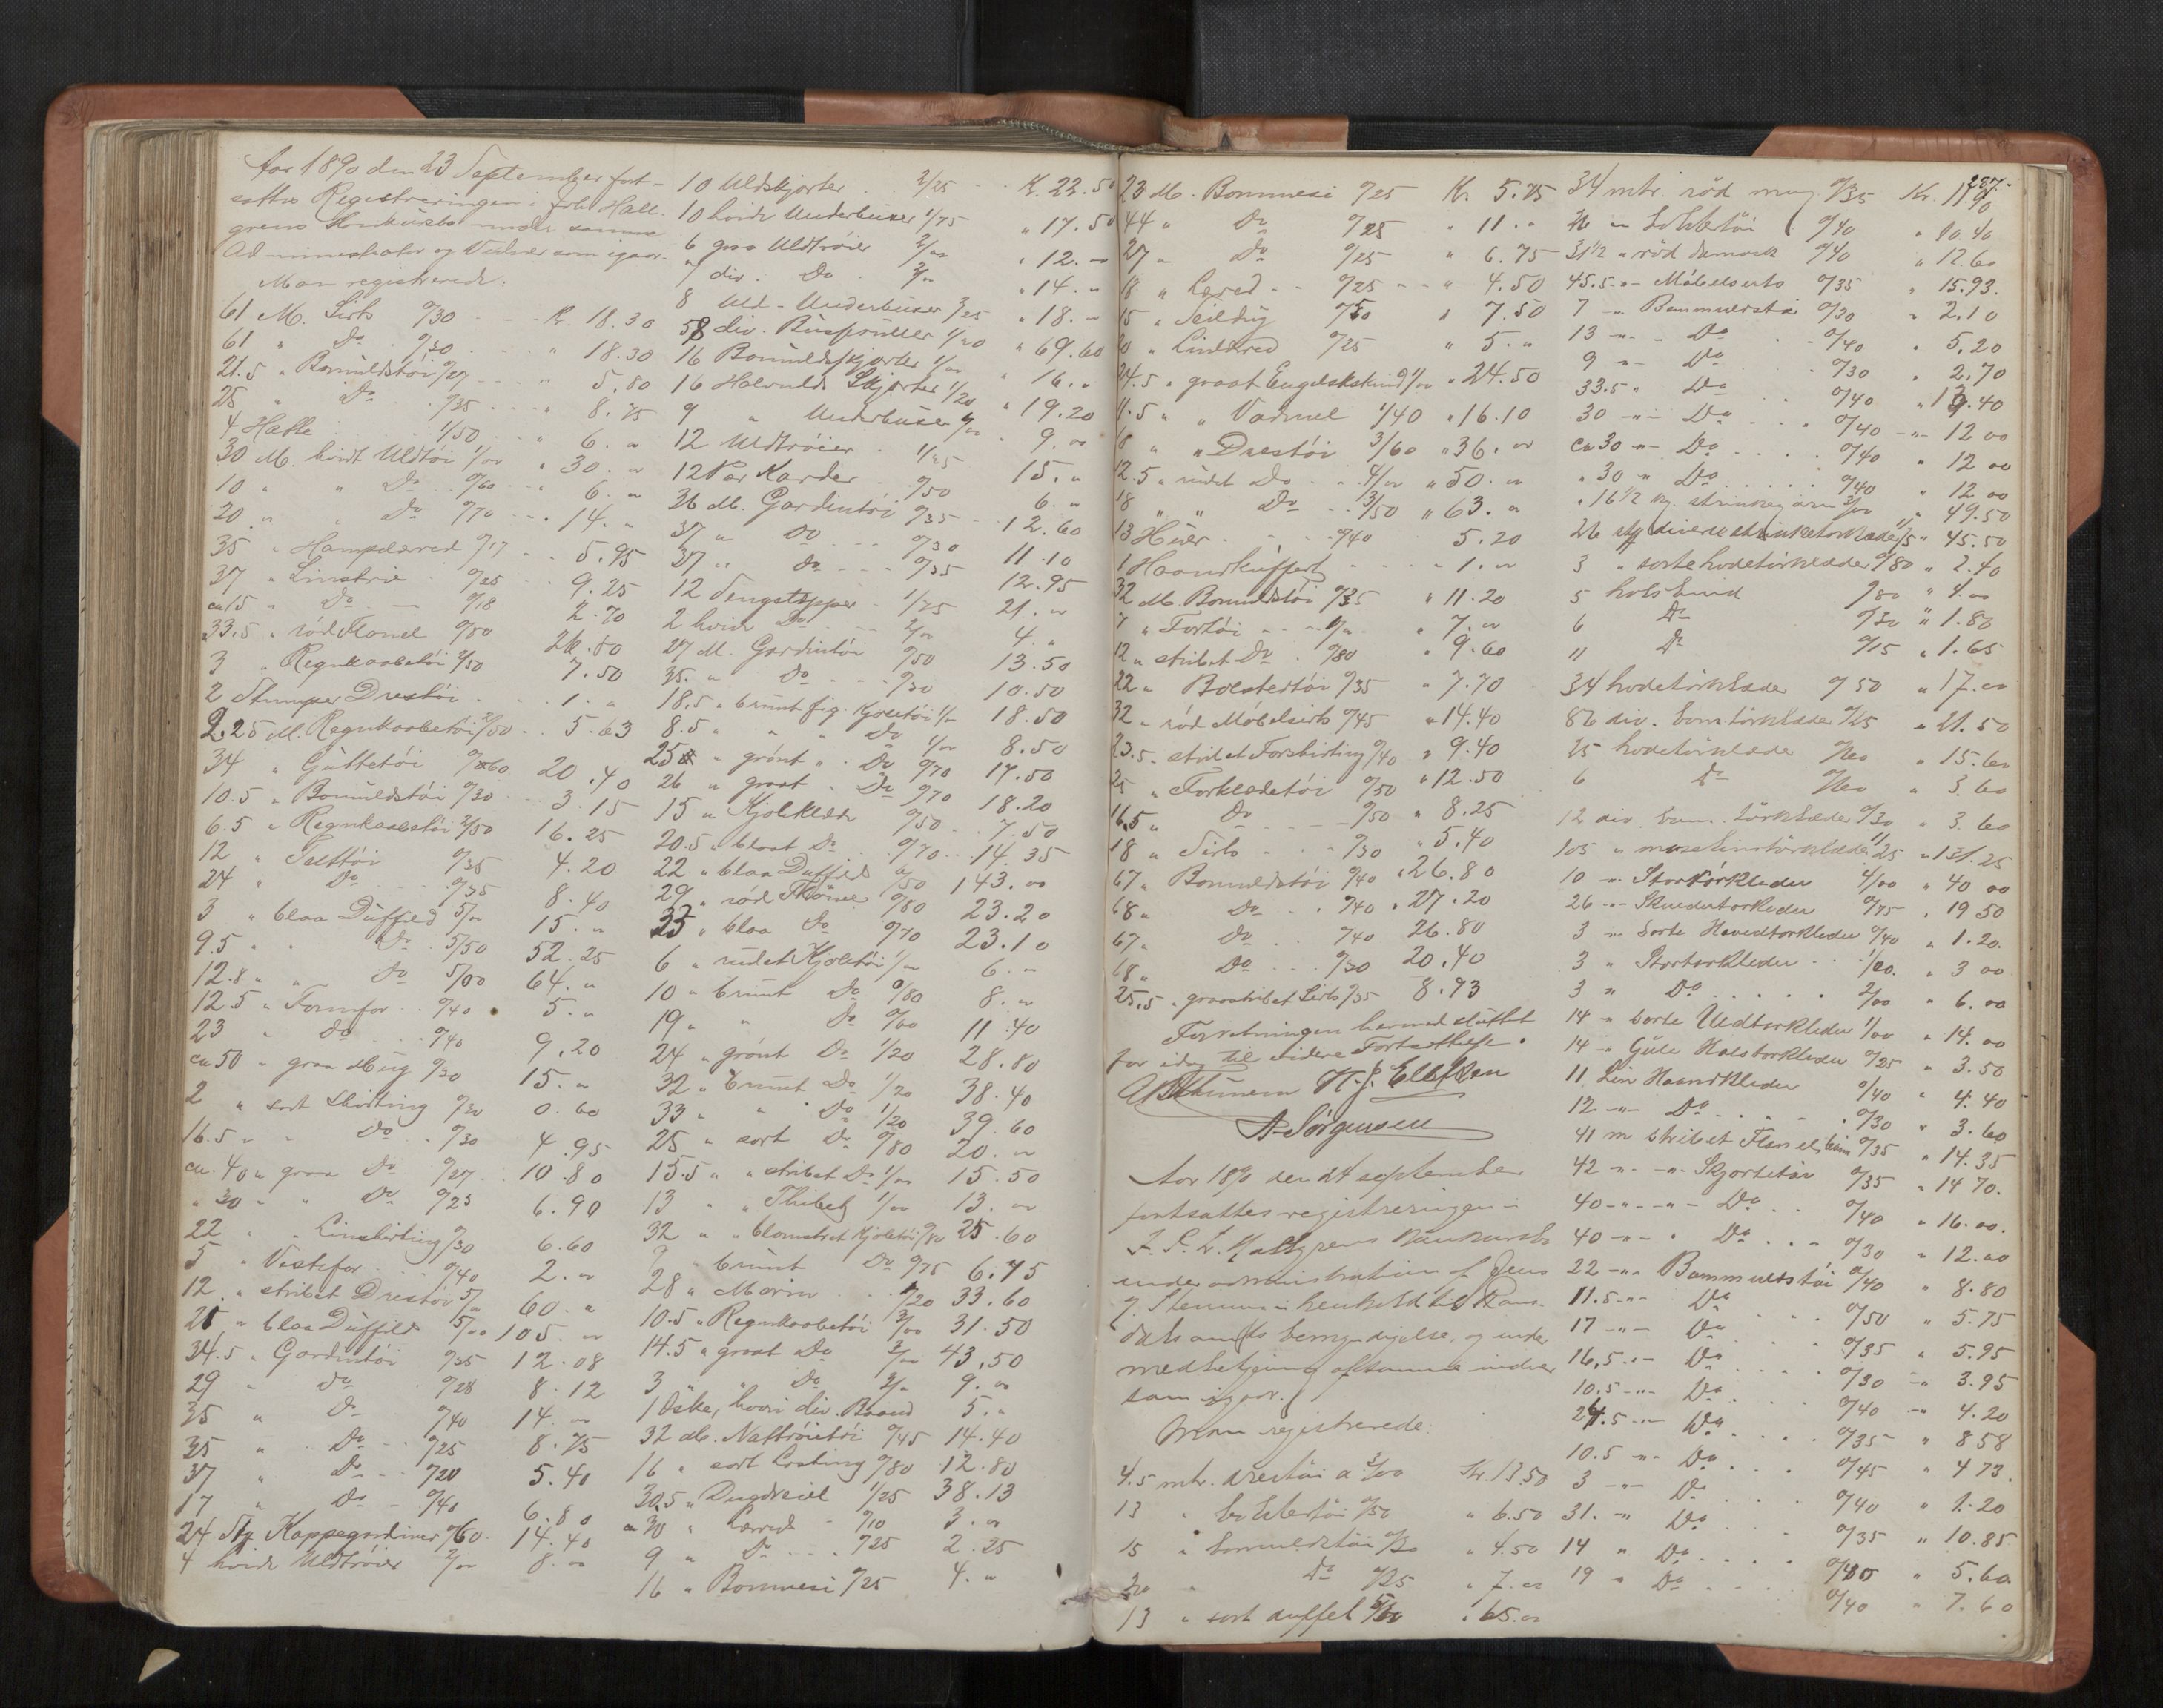 Aar 1890 den 23 September fort-
sattes Registreringen i forh. Hall-
grens Konkursbo under samme
Administrator og Vidner som igaar.
Man registrerede:
61 M. Sirts 0/30 Kr. 18.30
61 " Do 0/30 " 18.30
21.5 " Bomuldstöi 0/27 " 5.80
25 " Do 0/35 " 8.75
4 Hatte 1/50 " 6. "
30 M. hvidt Uldtöi 1/00 " 30. "
10 " " Do 0/60 " 6. "
20 " " Do 0/70 " 14. "
35 " Hampelærred 0/17 " 5.95
37 " Linstrie 0/25 9.25
ca 15 " Do 0/18 2.70
33.5 " rød Flanel 0/80 26.80
3 " Regnkaabetöi 2/50 7.50
2 Stumper Drestöi 1. "
2.25 M. Regnkaabetöi 2/50 5.63
34 " Güttetöi 0/60 20.40
10.5 " Bomuldstöi 0/30 3.15
6.5 " Regnkaabetöi 2/50 16.25
12 " Testtöi 0/35 4.20
24 " Do 0/35 8.40
3 " blaa Düffeld 5/" 15. "
9.5 " " Do 5/50 52.25
12.8 " " Do 5/00 64. "
12.5 " Formfor 0/40 5. "
23 " Do 0/40 9.20
ca 50 " graa Mug 0/30 15. "
2 " sort Skirting 0/30 0.60
16.5 " " Do 0/30 4.95
ca. 40 " graa Do 0/27 10.80
" 30 " " Do 0/23 6.90
22 " " Linskirting 0/30 6.60
5 " Vestefor 0/40 2. "
12 " stribet Drestöi 5/" 60. "
21 " blaa Duffeld 5/00 105. "
34.5 " Gardintöi 0/35 12.08
29 " Do 0/28 8.12
35 " Do 0/40 14. "
35 " Do 0/25 8.75
27 " Do 0/20 5.40
17 " Do 0/40 6.80
24 Stk Kappegardiner 0/60 14.40
4 hvide Uldtröier 2/00 8. "
10 Uldskjorter 2/25 Kr. 22.50
10 hvide Underbuxer 1/75 " 17.50
6 graa Uldtröier 2/00 " 12. "
7 div. Do 2/" " 14. "
8 Uld-Underbuxer 2/25 " 18. "
58 div. Busseruller 1/20 " 69.60
16 Bomuldsskjorter 1/00 " 16. "
16 Halvulds Skjorter 1/20 " 19.20
9 " Underbuxer 1/00 " 9. "
12 Uldtröier 1/25 15. "
12 Par Karder 0/50 6. "
36 M. Gardintöi 0/35 12.60
37 " Do 0/30 11.10
37 " Do 0/35 12.95
12 Sengetæpper 1/75 21. "
2 hvide Do 2/00 4. "
27 M. Gardintöi 0/50 13.50
35. " Do 0/30 10.50
18.5 " brunt fig. Kjoletöi 1/" 18.50
8.5 " " " Do 1/00 8.50
25 " grönt " Do 0/70 17.50
26 " graat " Do 0/70 18.20
15 " Kjoleklæde 0/50 7.50
20.5 " blaat Do 0/70 14.35
22 " blaa Duffeld 6/50 143. "
29 " rød Thömee 0/80 23.20
33 " blaa Do 0/70 23.10
6 " rudet Kjoletöi 1/" 6. "
10 " brunt Do 0/80 8. "
19 " " Do 0/60 11.40
24 " grönt Do 1/20 28.80
32 " brunt Do 1/20 38.40
33 " " Do 1/20 39.60
25 " sort Do 0/80 20. "
15.5 " " stribet Do 1/00 15.50
13 " " Thibet 1/00 13. "
32 " " blomstret Kjoletöi 0/80 25.60
9 " brunt Do 0/75 6.75
28 " Morin 1/20 33.60
10.5 " Regnkaabetöi 3/00 31.50
14.5 " graat Do 3/00 43.50
3 " " Do 3/" 9. "
1 Öske, hvori div. Baand 5. "
32 M. Nattröietöi 0/45 14.40
16 " sort Lasting 0/80 12.80
30.5 " Dugdreiel 1/25 38.13
ca 30 " Lærred 0/10 3. "
9 " Do 0/25 2.25
16 " Bommesi 0/25 4. "
287.
23 M. Bommesi 0/25 Kr. 5.75
44 " Do 0/25 " 11. "
27 " Do 0/25 " 6.75
18 " Lærred 0/25 " 4.50
15 " Seildug 0/50 " 7.50
20 " Linlærred 0/25 " 5. "
24.5 " graat Engelskskind 1/00 " 24.50
11.5 " " Vadmel 1/40 " 16.10
18 " " Drestöi 3/60 " 36. "
12.5 " rudet Do 4/00 " 50. "
18 " " Do 3/50 " 63. "
13 Huer 0/40 5.20
1 Haandkuffert " 1. "
32 M. Bomuldstöi 0/35 " 11.20
7 " Fortöi 1/" " 7. "
12 " stribet Do 0/80 " 9.60
22 " Bolstertöi 0/35 " 7.70
32 " rød Möbelsirts 0/45 " 14.40
23.5 " stribet Forskirting 0/40 " 9.40
25 " Forklædetöi 0/50 " 12.50
16.5 " Do 0/50 " 8.25
18 " Sirts 0/30 " 5.40
67 " Bomuldstöi 0/40 " 26.80
68 " Do 0/40 " 27.20
67 " Do 0/40 26.80
68 " Do 0/30 20.40
25.5 " graastribet Sirts 0/35 8.93
Forretningen hermed sluttet
for idag til videre Fortsættelse.
K. J. Ellefsen
A. Sörgensen
Aar 1890 den 24 september
fortsattes registreringen i
F. S. L. Hallgrens konkursbo
under administration af Jens
J. Stenum i henhold til Roms-
dals amts bemyndigelse, og under
medbetjening af samme vidner
som igaar.
Man registrerede:
4.5 mtr. Drestöi a 3/00 Kr. 13.50
13 " bolstertöi 0/50 " 6.50
15 " bomuldstöi 0/30 " 4.50
20 " Do 0/35 " 7. "
13 " sort duffel 5/00 " 65. "
34 mtr. röd mug 0/35 Kr. 11.90
26 " bolstertöi 0/40 " 10.40
31 1/2 " röd damask 0/40 " 12.60
45.5 " Möbelsirts 0/35 " 15.93.
7 " Bommuldstöi 0/30 " 2.10
13 " Do 0/40 " 5.20
9 " Do 0/30 " 2.70
33.5 " Do 0/40 " 13.40
30 " Do 0/40 " 12 00
ca 30 " Do 0/40 " 12 00
" 30 " Do 0/40 " 12 00
" 16 1/2 kg. strikkegarn 3/00 " 49.50
26 stk diverse strikketörklæder 1/75 " 45.50
3 " sorte hodetörklæder 0/80 " 2.40
5 halsbind 0/80 " 4.00
6 Do 0/30 " 1.80
11 Do 0/15 " 1.65
34 hodetörklæder 0/50 " 17.00
86 div. bom. törklæder 0/25 " 21.50
25 hodetörklæder 0/60 " 15.60
6 Do 0/60 " 3.60
12 div. bom. törklæder 0/30 " 3.60
105 " musselinstörklæder 1/25 " 131.25
10 " Stortörkleder 4/00 " 40 00
26 " Skuldertorkleder 0/75 " 19 50
3 " Sorte Hovedtorkleder 0/40 " 1.20.
3 " Stortorkleder 1/00. " 3 00
3 " Do 2/00 " 6.00
14 " Sorte Uldtorkleder 1/00 " 14.00
14 " Gule Halstorkleder 0/25 " 3.50
11 Lin Haandkleder 0/40 " 4.40
12 " Do 0/30 " 3.60
41 m stribet Flanel, bom 0/35 " 14.35
42 " " Skjortetöi 0/35 " 14 70.
40 " " Do 0/40 " 16.00.
40 " " Do 0/30 " 12.00
22 " Bommuldstöi 0/40 " 8.80
11.5 " Do 0/50 " 5.75
17 " Do 0/35 " 5.95
16.5 " Do 0/30 " 3.95
10.5 " Do 0/40 " 4.20
24.5 " Do 0/35 " 8 58
10.5 " Do 0/45 " 4 73.
3 " Do 0/40 " 1.20
31. " Do 0/35 " 10.85
14 " Do 0/40 " 5.60
19 " Do 0/40 " 7.60